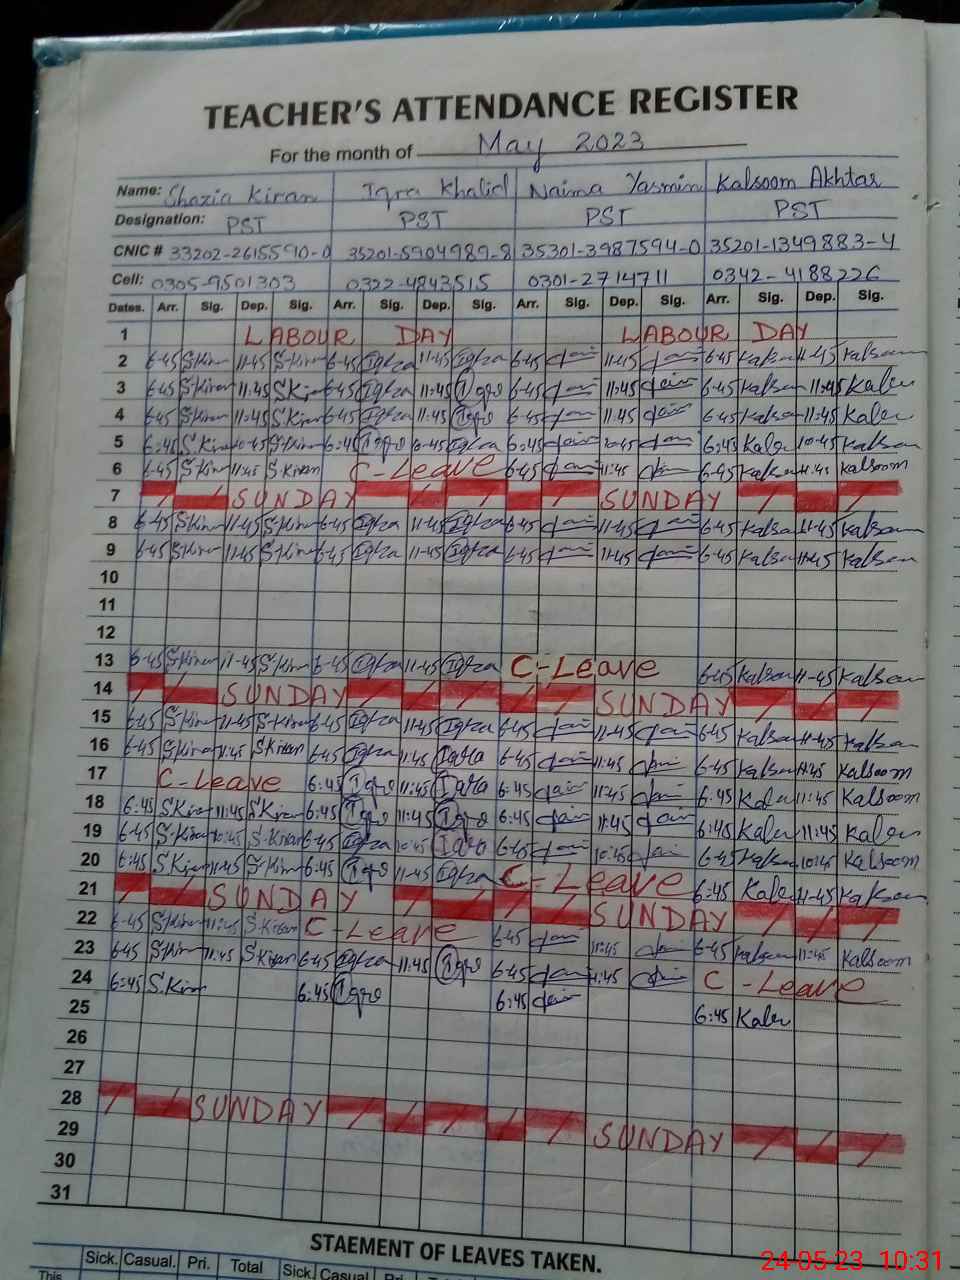 TEACHER'S ATTENDANCE REGISTER
For the month of May 2023
Name: Shazia Kiran Iqra Khalid Naima Yasmin Kalsoom Akhtar
Designation: PST PST PST PST
CNIC # 33202-2615590-0 35201-5904989-8 35301-3987594-0 35201-1349883-4
Cell: 0305-9501303 0322-4843515 0301-2714711 0342-4188226
Dates. Arr. Sig. Dep. Sig. Arr. Sig. Dep. Sig. Arr. Sig. Dep. Sig. Arr. Sig. Dep. Sig.
1 LABOUR DAY LABOUR DAY
2 6-45 S.Kiran 11-45 S.Kiran 6-45 Iqra 11-45 Iqra 6-45 11-45 6-45 Kalsoom 11-45 Kalsoom
3 6-45 S.Kiran 11-45 S.Kiran 6-45 Iqra 11-45 Iqra 6-45 11-45 6-45 Kalsoom 11-45
4 6-45 S.Kiran 11-45 S.Kiran 6-45 Iqra 11-45 Iqra 6-45 11-45 6-45 Kalsoom 11-45
5 6:45 S.Kiran 10-45 S.Kiran 6:45 Iqra 10-45 Iqra 6:45 10-45 6:45 10-45 Kalsoom
6 6-45 S.Kiran 11-45 S.Kiran C-Leave 6-45 11-45 6-45 Kalsoom 11-45 Kalsoom
7 SUNDAY SUNDAY
8 6-45 S.Kiran 11-45 S.Kiran 6-45 Iqra 11-45 Iqra 6-45 11-45 6-45 Kalsoom 11-45 Kalsoom
9 6-45 S.Kiran 11-45 S.Kiran 6-45 Iqra 11-45 Iqra 6-45 11-45 6-45 Kalsoom 11-45 Kalsoom
10
11
12
13 6-45 S.Kiran 11-45 S.Kiran 6-45 Iqra 11-45 Iqra C-Leave 6-45 Kalsoom 11-45 Kalsoom
14 SUNDAY SUNDAY
15 6-45 S.Kiran 11-45 S.Kiran 6-45 Iqra 11-45 Iqra 6-45 11-45 6-45 Kalsoom 11-45 Kalsoom
16 6-45 S.Kiran 11-45 S.Kiran 6-45 Iqra 11-45 Iqra 6-45 11-45 6-45 Kalsoom 11-45 Kalsoom
17 C-Leave 6:45 Iqra 11:45 Iqra 6:45 11-45 6:45 11:45 Kalsoom
18 6:45 S.Kiran 11:45 S.Kiran 6:45 Iqra 11:45 Iqra 6:45 11:45 6:45 11:45
19 6-45 S.Kiran 10:45 S.Kiran 6-45 Iqra 10:45 Iqra 6-45 10:45 6-45 Kalsoom 10:45 Kalsoom
20 6:45 S.Kiran 11-45 S.Kiran 6:45 Iqra 11-45 Iqra C-Leave 6:45 11-45 Kalsoom
21 SUNDAY SUNDAY
22 6-45 S.Kiran 11:45 S.Kiran C-Leave 6-45 11:45 6-45 Kalsoom 11:45 Kalsoom
23 6:45 S.Kiran 11:45 S.Kiran 6-45 Iqra 11:45 Iqra 6-45 11:45 C-Leave
24 6:45 S.Kiran 6:45 Iqra 6:45 6:45
25
26
27
28 SUNDAY SUNDAY
29
30
31
STAEMENT OF LEAVES TAKEN.
Sick. Casual. Pri. Total Sick. Casual Pri.
This
24-05-23 10:31